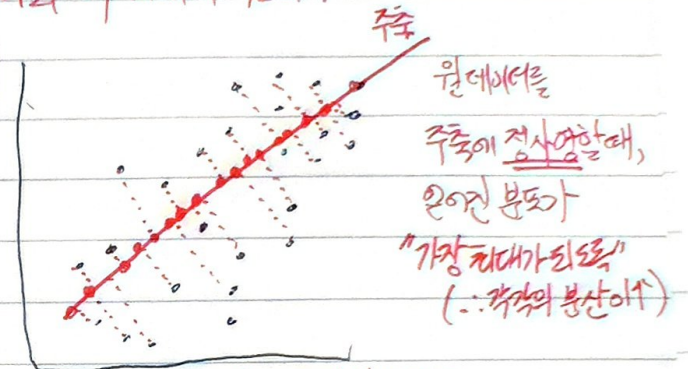 주축
원데이터를
주축에 정사영할 때,
얻어진 분포가
"가장 최대가 되도록"
(∴ 각각의 분산이↑)